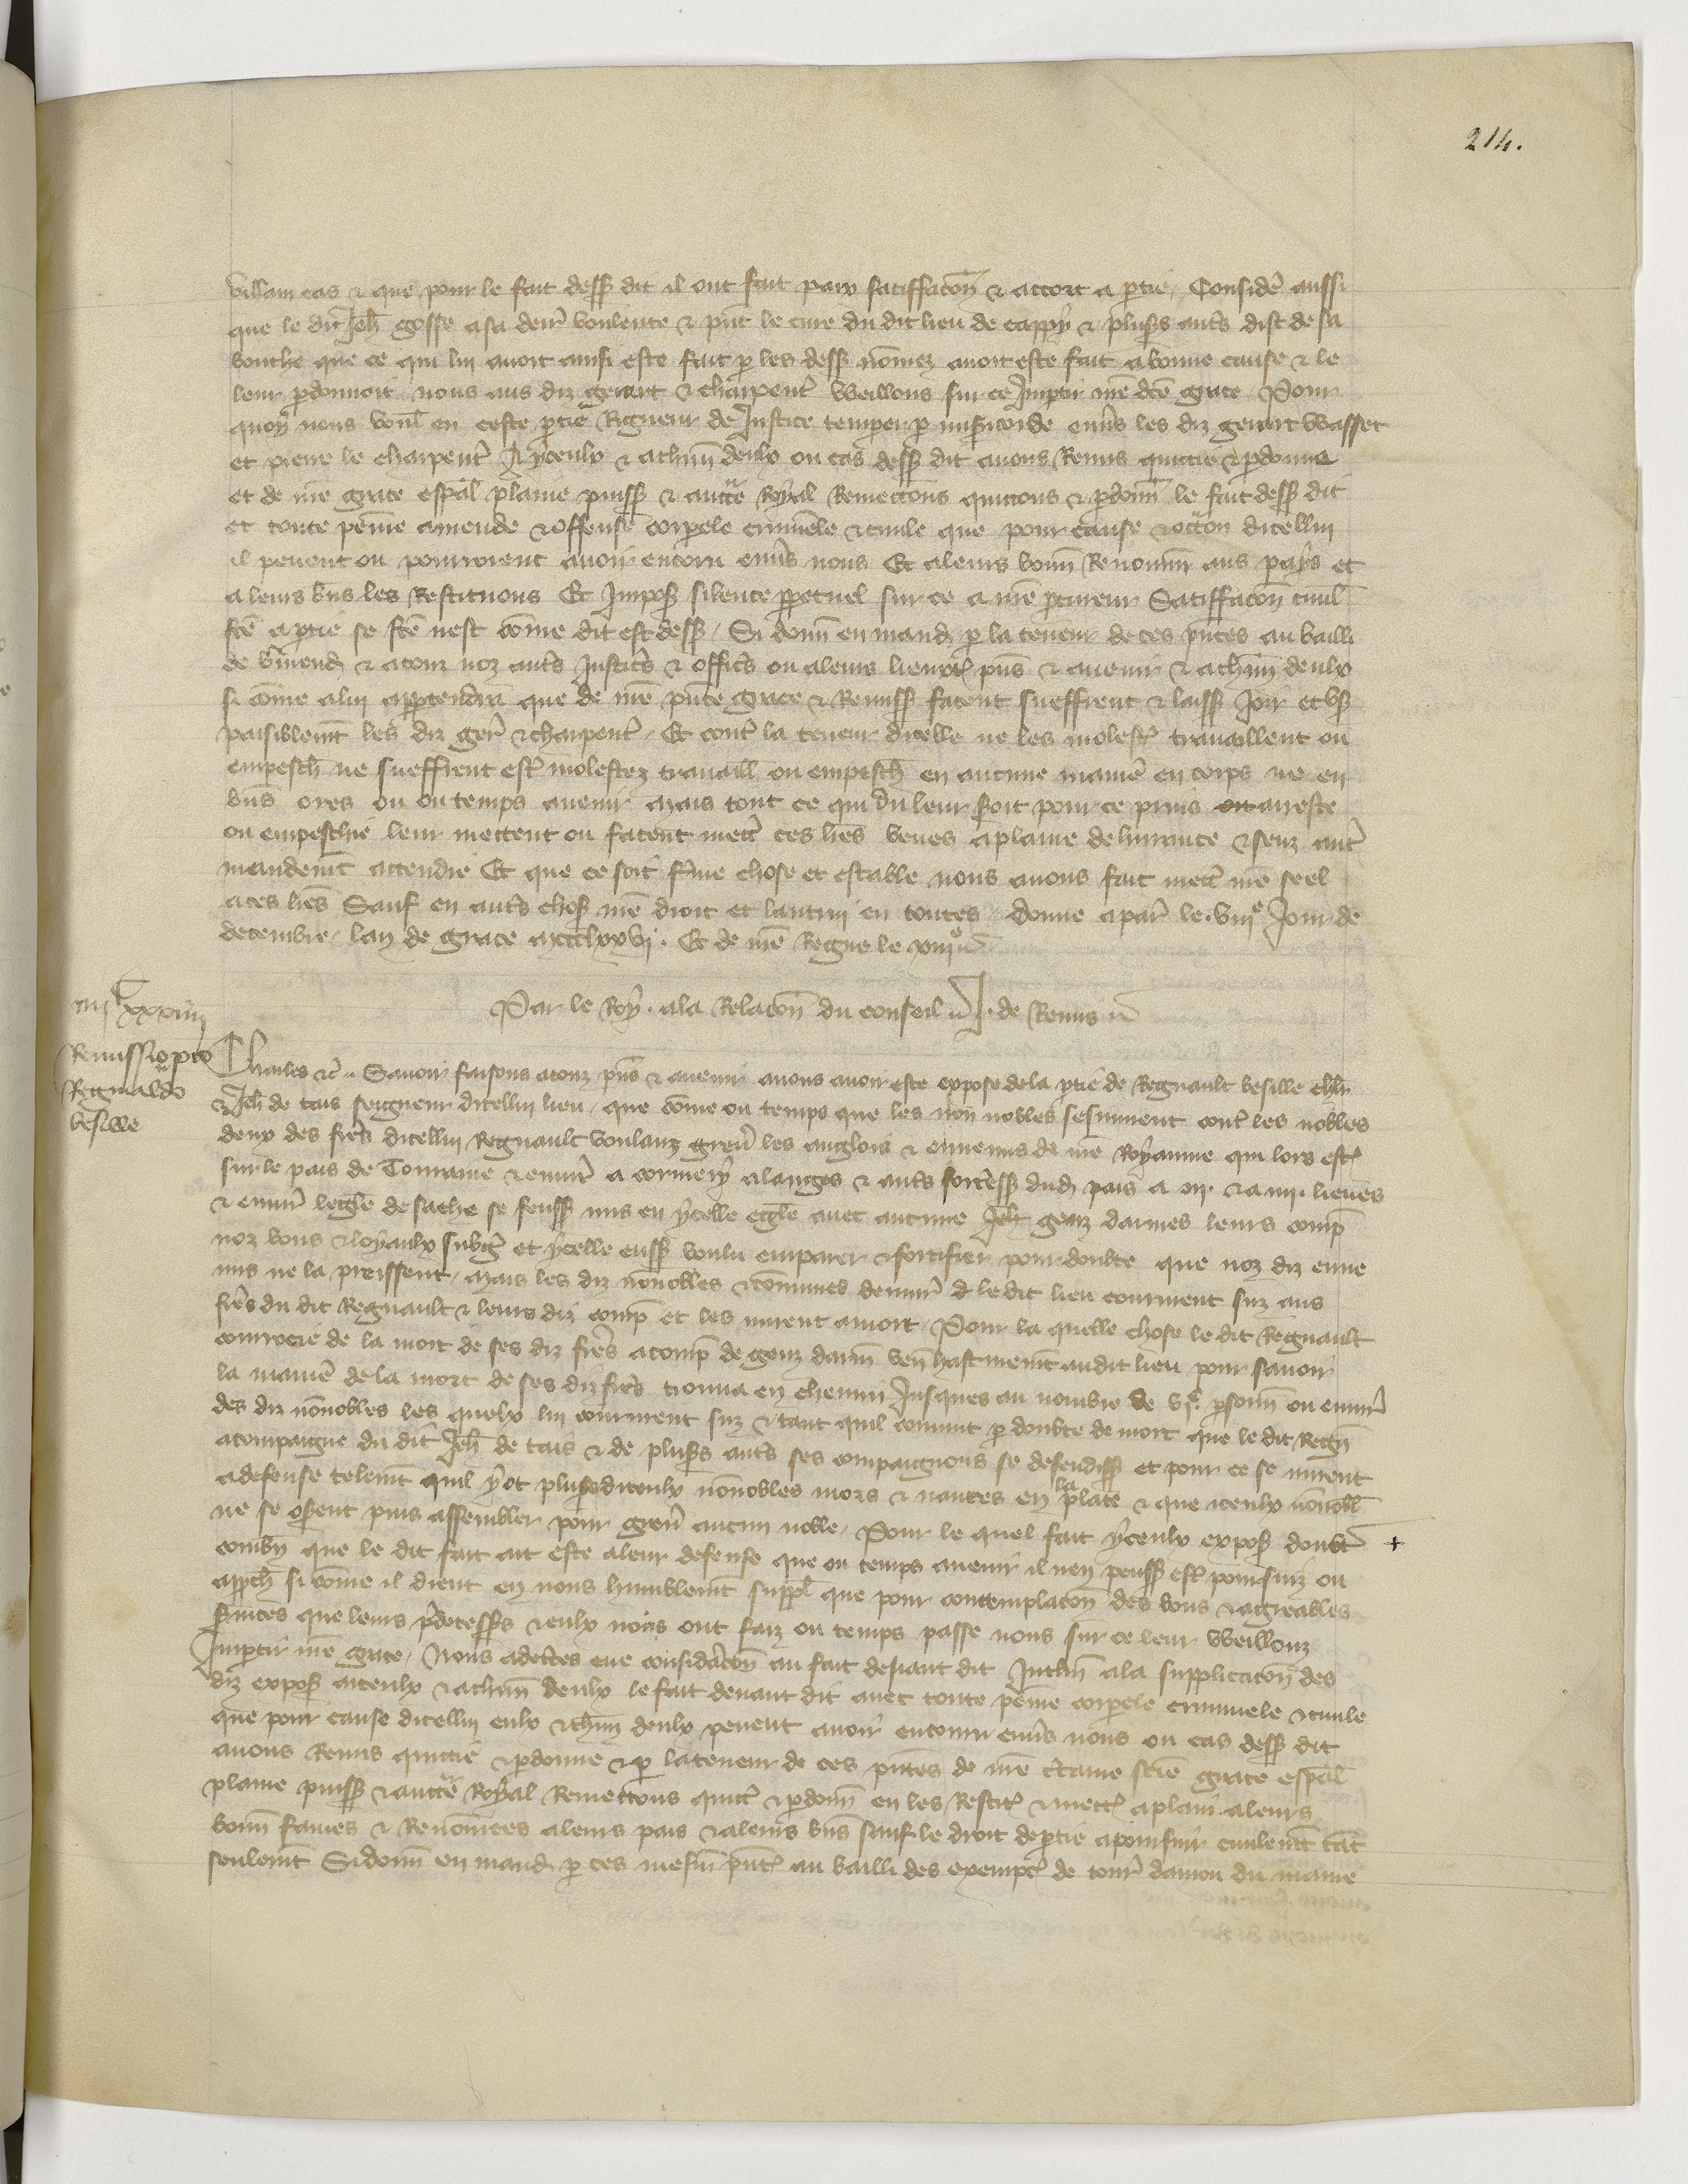 214.
villain cas & que pour le fait dess dit il ont fait paix satiffacon & accort a ptie Considé aussi
que le dit Jeh gosse a sa denr voulente & pnt le cure du dit lieu de cappy & pluss auts dist de sa
bouche que ce qui lui avoit ainsi este fait p les dess nomez avoit este fait a bonne cause & le
leur pdonnoit nous aus diz gerart & charpent Weillons sur ce Imptir nre dce grace Pour
quoy nous voul en ceste ptie Rigueur de Justice temperer p misicorde envs les diz gerart Wasset
et piere le charpent A yceulx & a chun deulx ou cas dess dit avons Remis quictie & pdonne
et de nre grace espal plaine puiss & aucte Royal Remectons quictons & pdonn le fait dess dit
et toute peine amende & offense corpele criminele & civile que pour cause & occon dicellui
il pevent ou pourroient avoir encoru envs nous Et a leurs bonn Renomm aus pays et
a leurs bns les Restituons Et Impos silence ppetuel sur ce a nre pcureur Satiffacon civil
fce a ptie se fce nest come dit est dess Si donn en mand p la teneur de ces pntes au bailli
de vmend & a touz noz auts Justics & offics ou a leurs lieux pns & avenir & a chun deulx
si come a lui apptendra que de nre pnte grace & Remiss facent sueffrent & laiss Joir et us
paisiblemt les diz ger & charpent Et cont la teneur dicelle ne les molest travaillent ou
empesch ne sueffrent est molestez travaill ou empesch en aucune manie en corps ne en
bns ores ou ou temps avenir Mais tout ce qui du leur soit pour ce prins ou arreste
ou empeschie leur mettent ou facent mett ces lres veues a plaine delivrance & senz aut
mandemt actendre Et que ce soit ferme chose et estable nous avons fait mett nre seel
a ces lres Sauf en auts choses nre droit et lautrui en toutes donne a paris le viije Jour de
decembre lan de grace mccclxxvj Et de nre Regne le xiije
Par le Roy a la Relacon du conseil J. de Remis
iiijc xxxiiij
Remissio pro
Reginaldo
besille
Charles etc Savoir faisons a touz pns & avenir a nous avoir este expose de la ptie de Regnault besille chlr
& Jeh de tais seigneur dicellui lieu que come ou temps que les non nobles sesmurent cont les nobles
deux des freres dicellui Regnault voulanz grever les anglois & ennemis de nre Royaume qui lors est
sur le pais de Touraine & environ a cormery a langes & auts forcess dud pais a iij & a iiij lieues
& environ legle de sache se feuss mis en ycelle egle avec aucune genz darmes leurs comp
noz bons & loyaulx subgez et ycelle euss voulu emparer & fortifier pour doubte que noz diz enne
mis ne la preissent Mais les diz nonobles & comunes denvir le dit lieu coururent suz aus
freres du dit Regnault & leurs diz comp et les mirent a mort Pour la quelle chose le dit Regnault
courrocie de la mort de ses diz freres acomp de genz darm ven hastivement audit lieu pour savoir
la manie de la mort de ses diz freres trouva en chemin Jusques au nombre de vjc psonn ou environ
des diz nonobles les quelx lui coururent suz & tant quil convint p doubte de mort que le dit Regn
acompaigne du dit Jeh de tais & de pluss auts ses compaignons se defendiss et pour ce se mirent
a defense telemt quil y ot pluss diceulx nonobles mors & navres en la place & que iceulx nonobl
ne se oserent puis assembler pour grever aucun noble Pour le quel fait yceulx expos doubt +
combn que le dit fait ait este a leur defense que ou temps avenir il nen peuss est poursuiz ou
approch si come il dient en nous humblemt suppl que pour contemplacon des bons & agreables
svices que leurs pdecesss & eulx nous ont faiz ou temps passe nous sur ce leur weillonz
Imptir nre grace Nous adectes eue consideracon au fait devant dit Inclin a la supplicacon des
diz expos a iceulx & a chun deulx le fait devant dit avec toute peine corpele criminele & civile
que pour cause dicellui eulx & chun deulx pevent avoir encouru envs nous ou cas dess dit
avons Remis quictie & pdonne & p la teneur de ces pntes de nre ctaine scie grace espal
plaine puiss & aucte Royal Remectons quict & pdonn en les Restit & mett a plain a leurs
bonn fames & Renomees a leurs pais & a leurs bns sauf le droit de ptie a poursuir civilemt tant
seulemt Si donn en mand p ces mesm pnt au bailli des exemp de tour danjou du maine